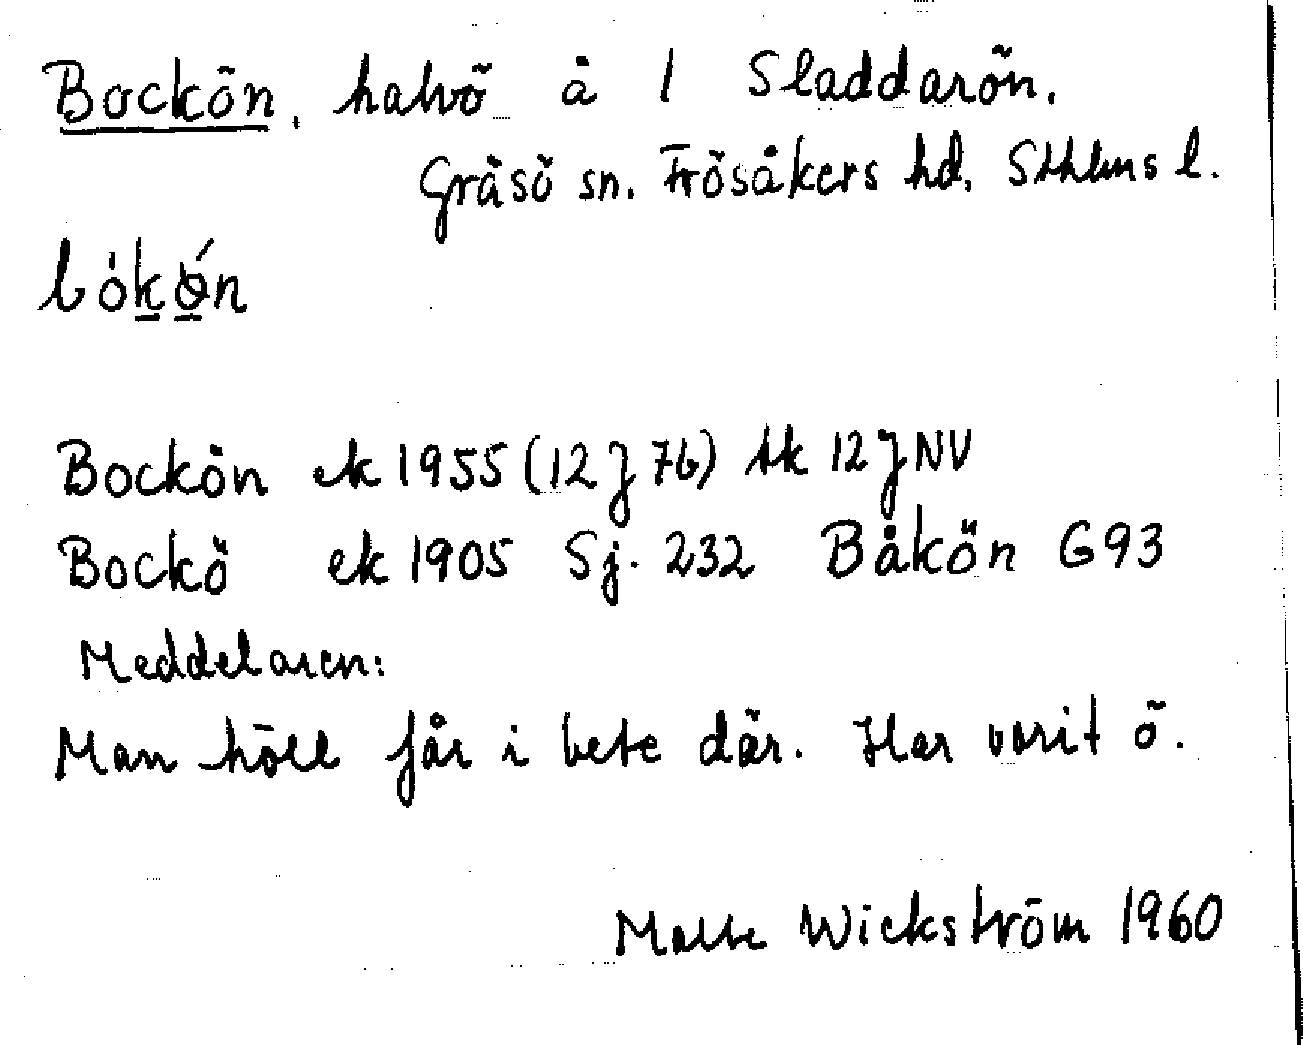 Bockön, halvö å 1 Sladdarön.
Gräsö sn. Frösåkers hd. Sthlms l.
Bockön ek 1955 (12 J 7b) tk 12 J NV
Bockö ek 1905 Sj. 232 Båkön G93
Meddelaren:
Man höll får i bete där. Har varit ö.
Wickström 1960